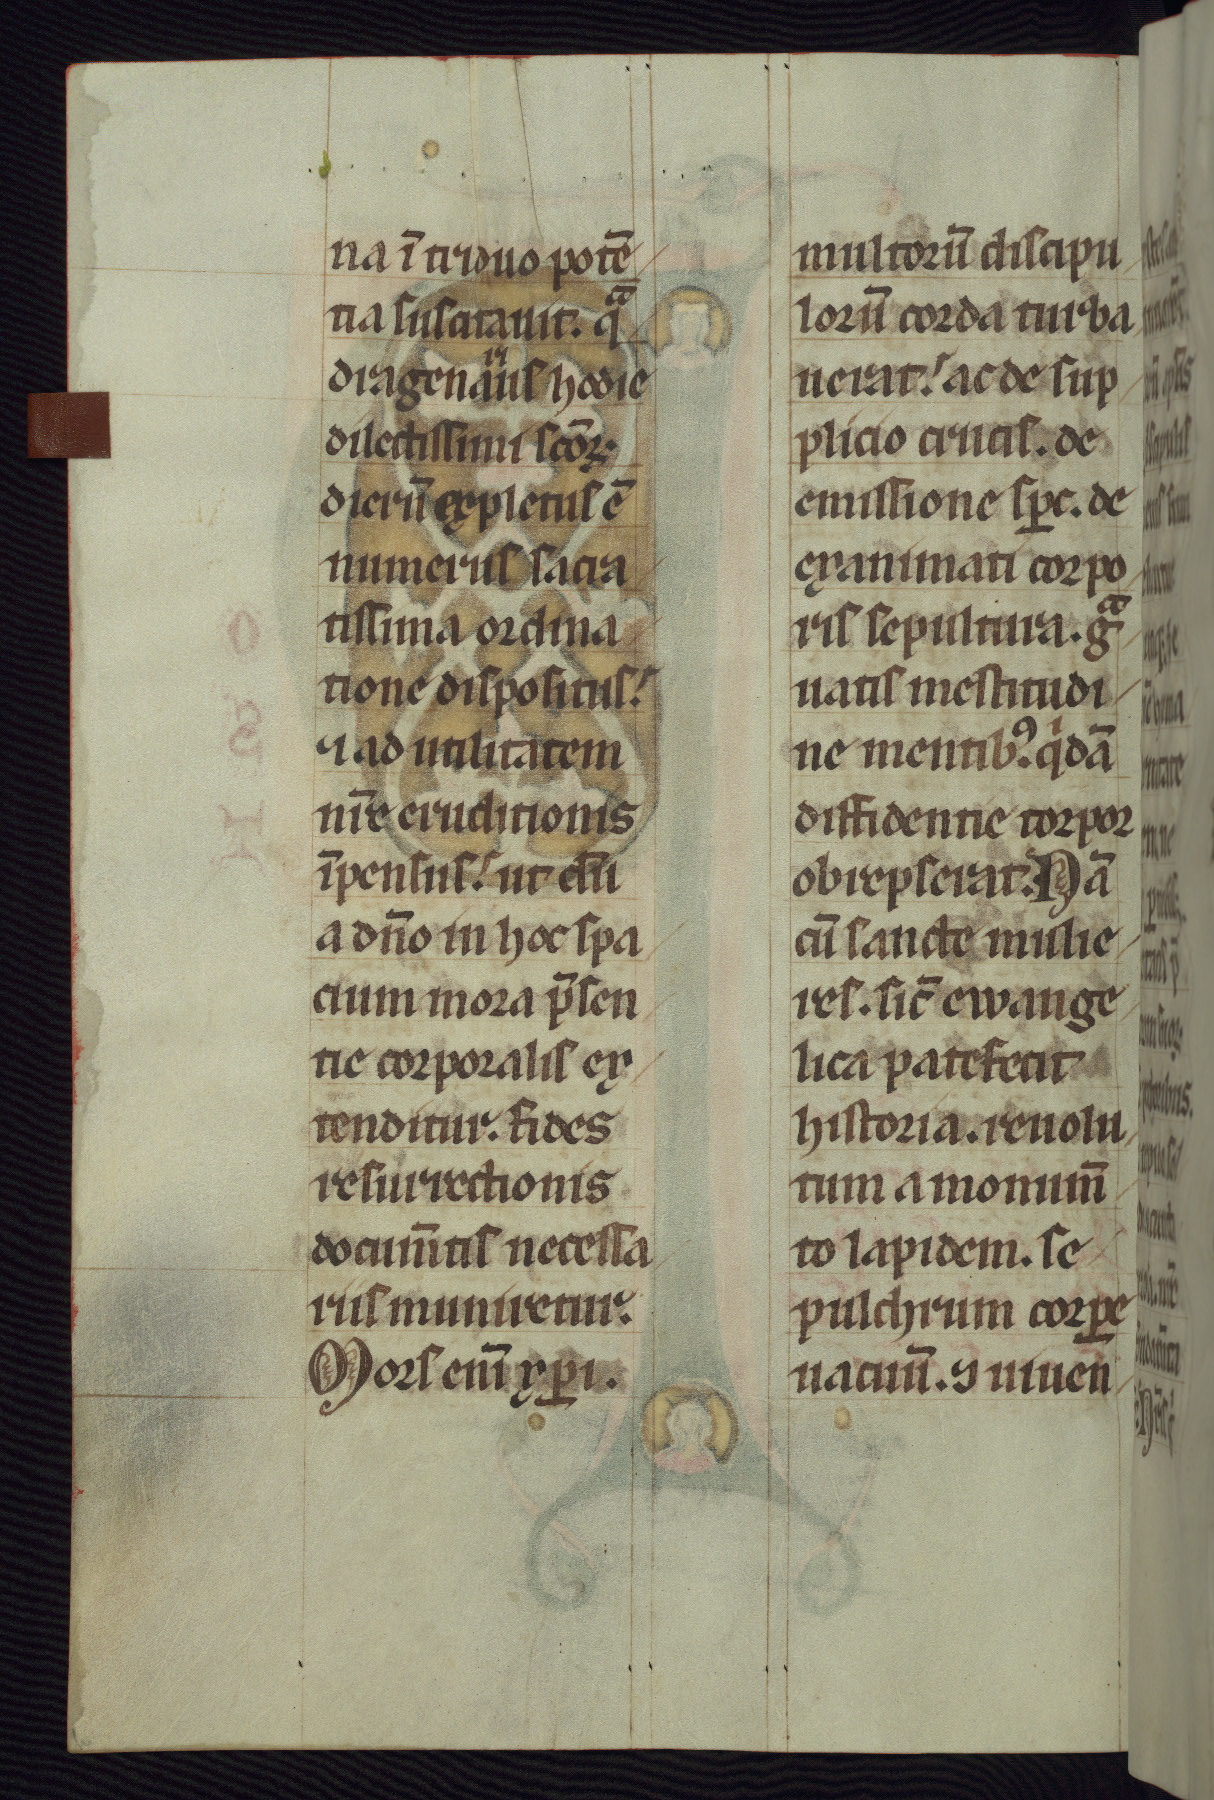 na ī triduo potē
tia suscitauit. qͣ
dragenaríus hodie
dilectissimi scōꝝ
dierū expletus ē
numerus sacra
tissima ordina
tione dispositus.
⁊ ad utilitatem
nr̄e eruditionis
īpensus. ut dum̄
a dn̄o in hoc spa
cium mora p̄sen
tie corporalis ex
tenditur. fides
resurrectionis
docum̄tis necessa
riis muniretur.
Mors enī xp̄i.
multorū discipu
lorū corda turba
uerat. ac de sup
plicio crucis. de
emissione sp̄c. de
exanimati corpo
ris sepultura. gͣ
uatis mestitudi
ne mentibꝰ. qͥdā
diffidentie torpor
obrepserat. Nā
cū sancte mulie
res. sic̄ ewange
lica patefecit
historia. reuolu
tum a monum̄
to lapidem. se
pulchrum corꝑe
uacuū. ⁊ uiuen